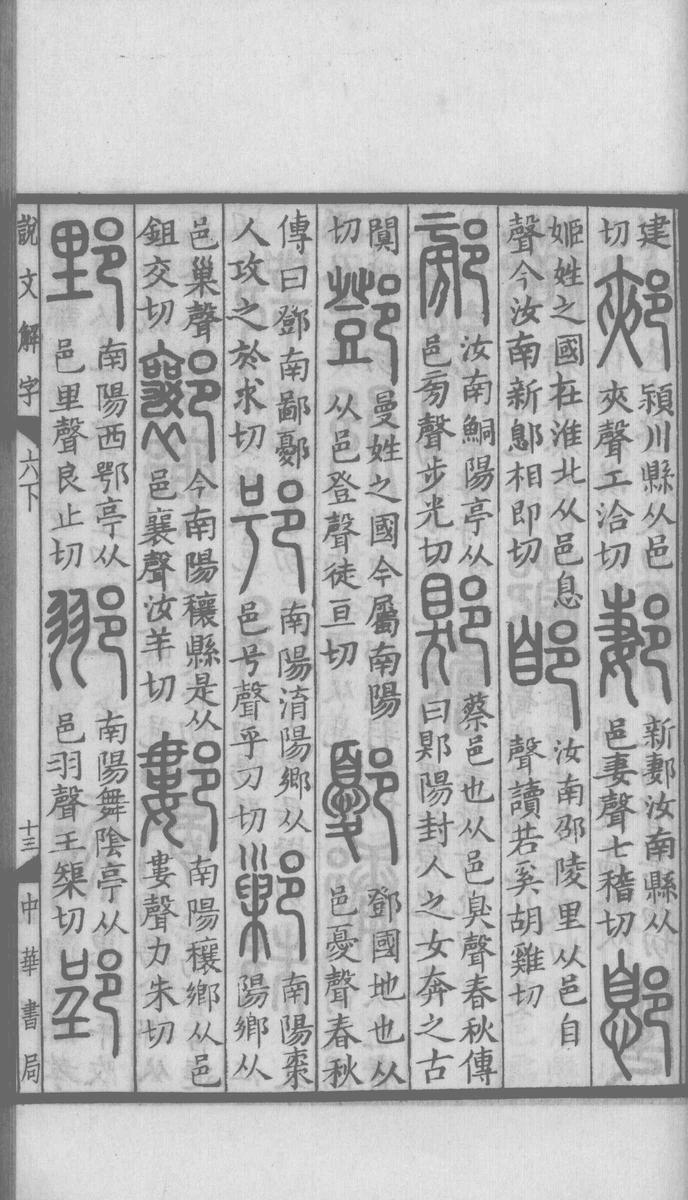 建切郟潁川縣从邑夾聲工洽切郪新郪汝南縣从邑妻聲七稽切鄎
姬姓之國在淮北从邑息聲今汝南新鄎相即切郋汝南邵陵里从邑自聲讀若奚胡雞切
䣙汝南鮦陽亭从邑㫄聲步光切郹蔡邑也从邑狊聲春秋傳曰郹陽封人之女奔之古
闃切鄧曼姓之國今屬南陽从邑登聲徒亘切鄾鄧國地也从邑憂聲春秋
傳曰鄧南鄙鄾人攻之於求切南陽淯陽鄉从邑号聲乎刀切鄛南陽棗陽鄉从
邑巢聲鉏交切𨟚今南陽穰縣是从邑襄聲汝羊切䣚南陽穰鄉从邑婁聲力朱切
𨛋南陽西鄂亭从邑里聲良止切南陽舞陰亭从邑羽聲王榘切郢
說文解字 六下 十三 中華書局